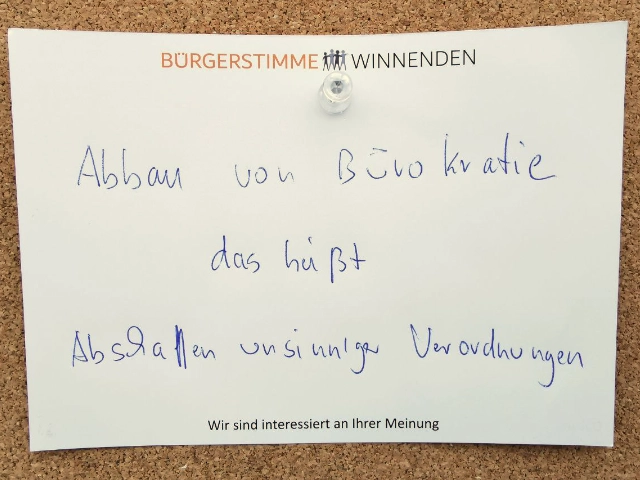 BÜRGERSTIMME WINNENDEN
Abbau von Bürokratie
das heißt
Abschaffen unsinniger Verordnungen
Wir sind interessiert an Ihrer Meinung